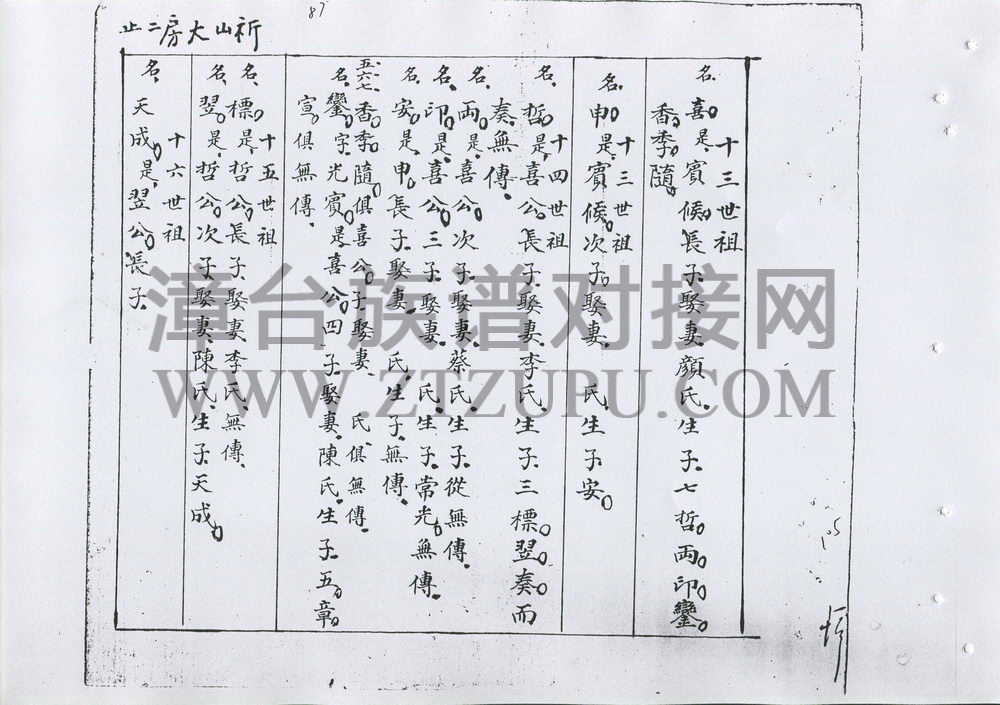 87
祈山大房二止
十三世祖
名喜是賓候長子娶妻顏氏生子七哲両印鑾
香季隨
十三世祖
名申是賓候次子娶妻 氏生子安
十四世祖
名哲是喜公長子娶妻李氏生子三標翌奏而
奏無傳
名両是喜公次子娶妻蔡氏生子從無傳
名印是喜公三子娶妻 氏生子常光無傳
名安是申長子娶妻 氏生子無傳
五六七香季隨俱喜公子娶妻 氏俱無傳
名鑾字光賓是喜公四子娶妻陳氏生子五章
宣俱無傳
十五世祖
名標是哲公長子娶妻李氏無傳
名翌是哲公次子娶妻陳氏生子天成
十六世祖
名天成是翌公長子
105
漳台族谱对接网
WWW.ZTZUPU.COM